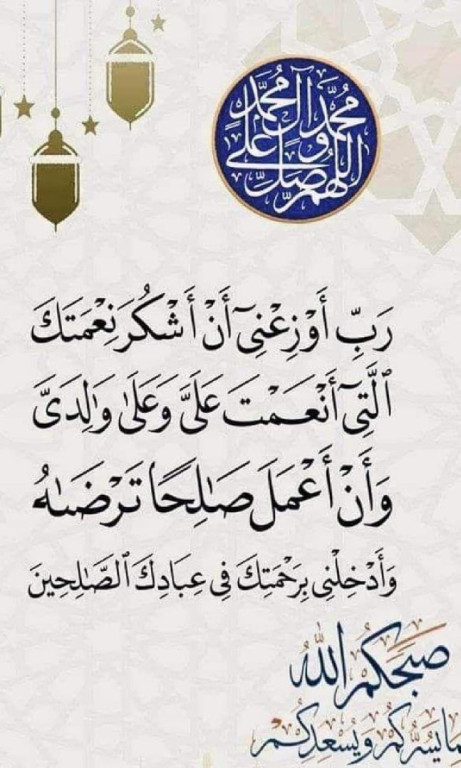 اللهم صل على محمد وآل محمد
رَبِّ أَوْزِعْنِىٓ أَنْ أَشْكُرَ نِعْمَتَكَ
ٱلَّتِىٓ أَنْعَمْتَ عَلَىَّ وَعَلَىٰ وَٰلِدَىَّ
وَأَنْ أَعْمَلَ صَـٰلِحًا تَرْضَىٰهُ
وَأَدْخِلْنِى بِرَحْمَتِكَ فِى عِبَادِكَ ٱلصَّـٰلِحِينَ
صبحكم الله
بما يسركم ويسعدكم